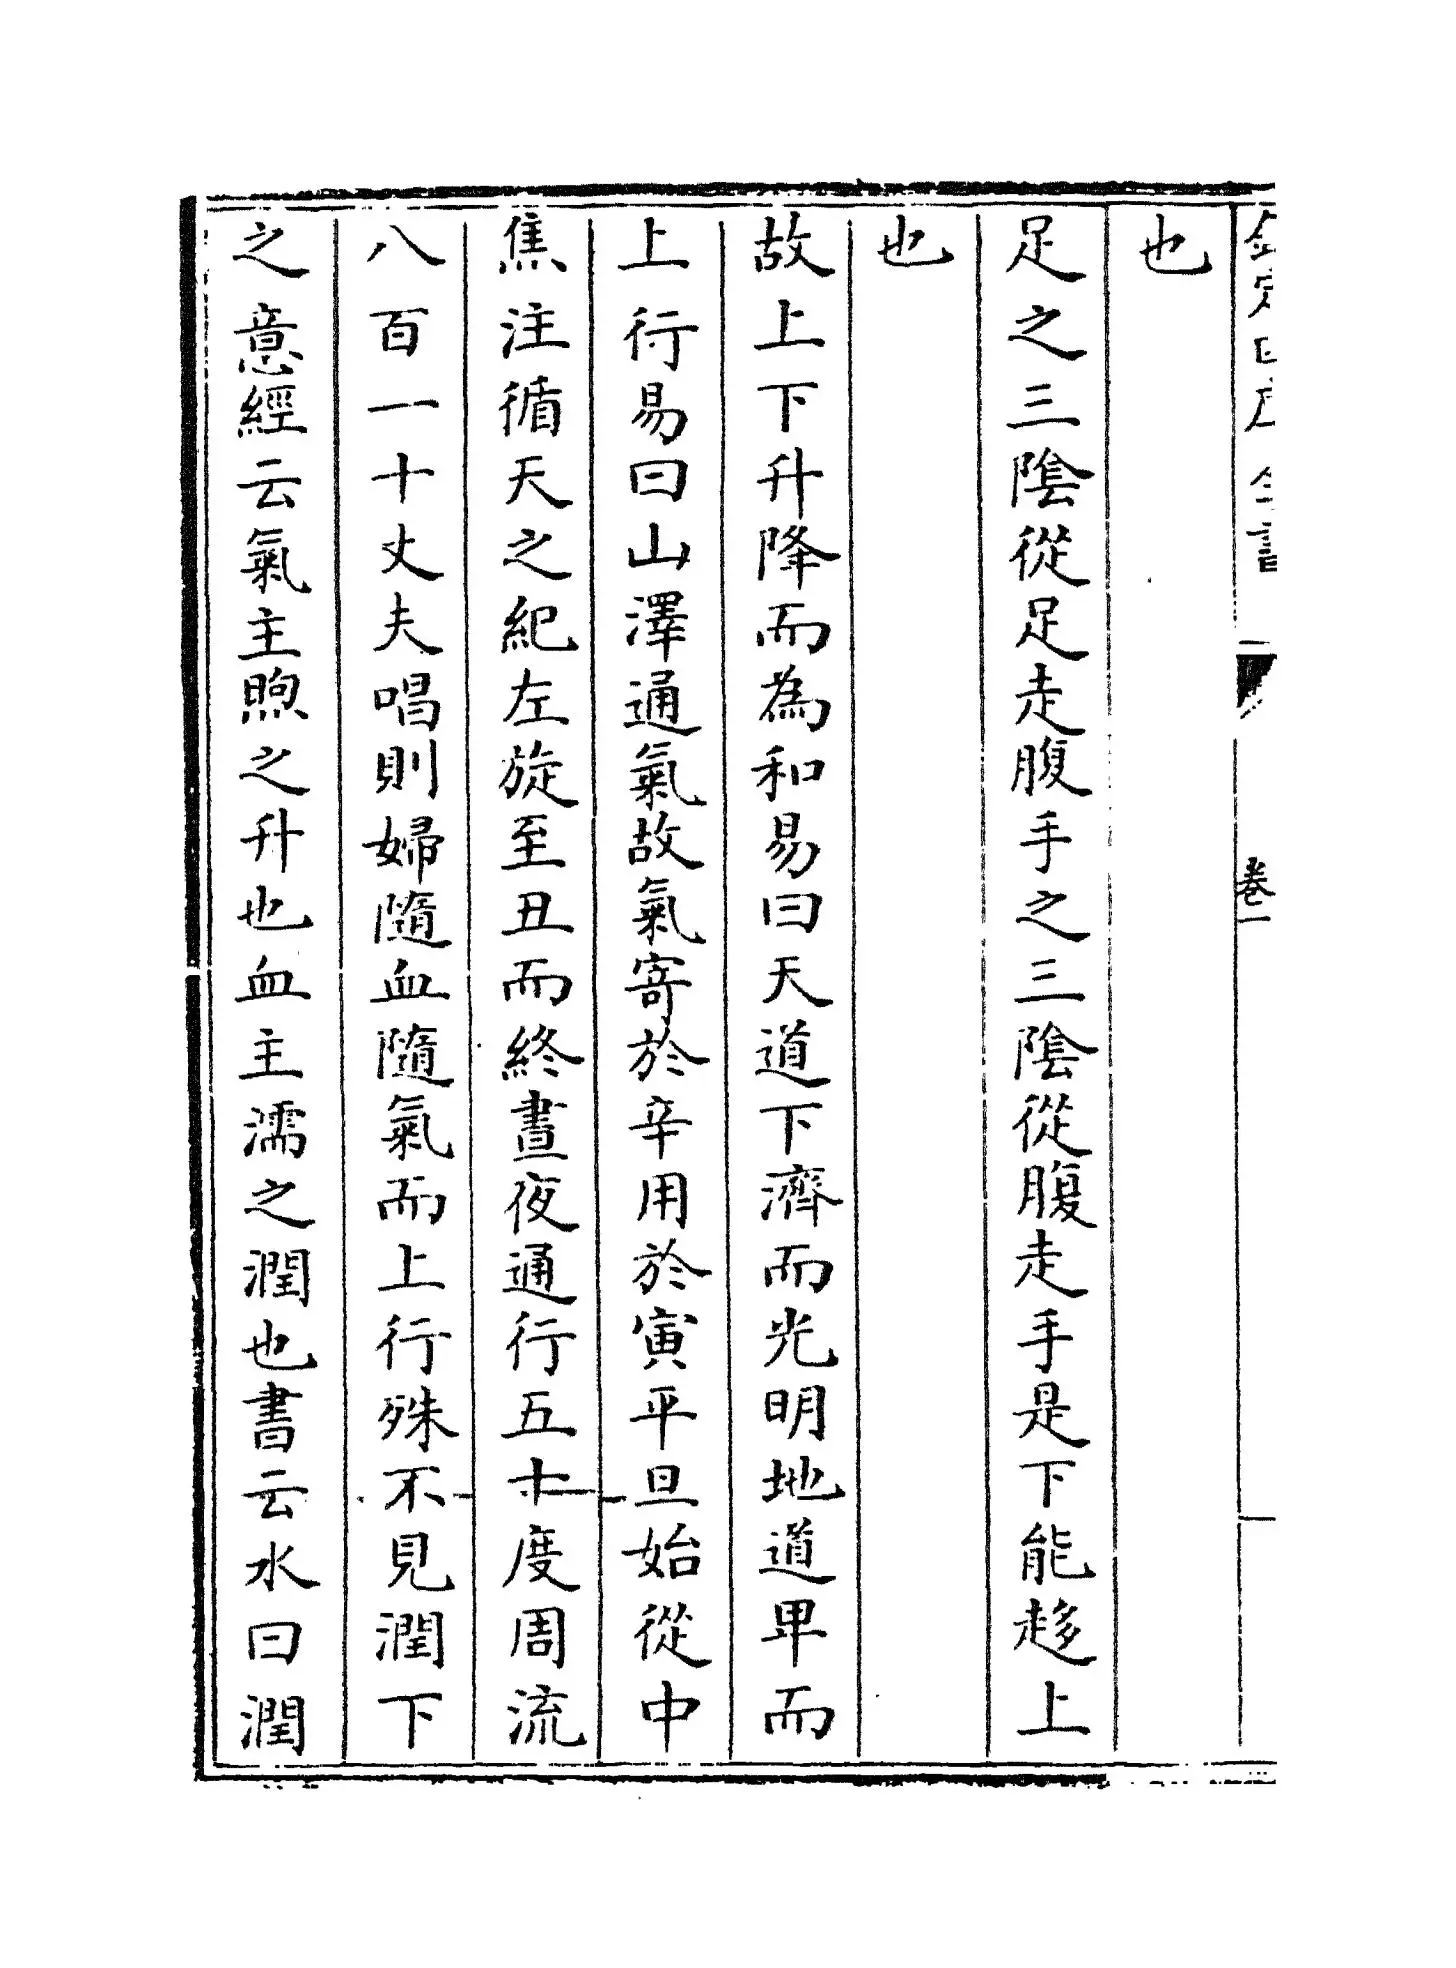 欽定四庫全書 卷一
也
足之三陰從足走腹手之三陰從腹走手是下能趍上
也
故上下升降而為和易曰天道下濟而光明地道卑而
上行易曰山澤通氣故氣寄於辛用於寅平旦始從中
焦注循天之紀左旋至丑而終晝夜通行五十度周流
八百一十丈夫唱則婦隨血隨氣而上行殊不見潤下
之意經云氣主煦之升也血主濡之潤也書云水曰潤